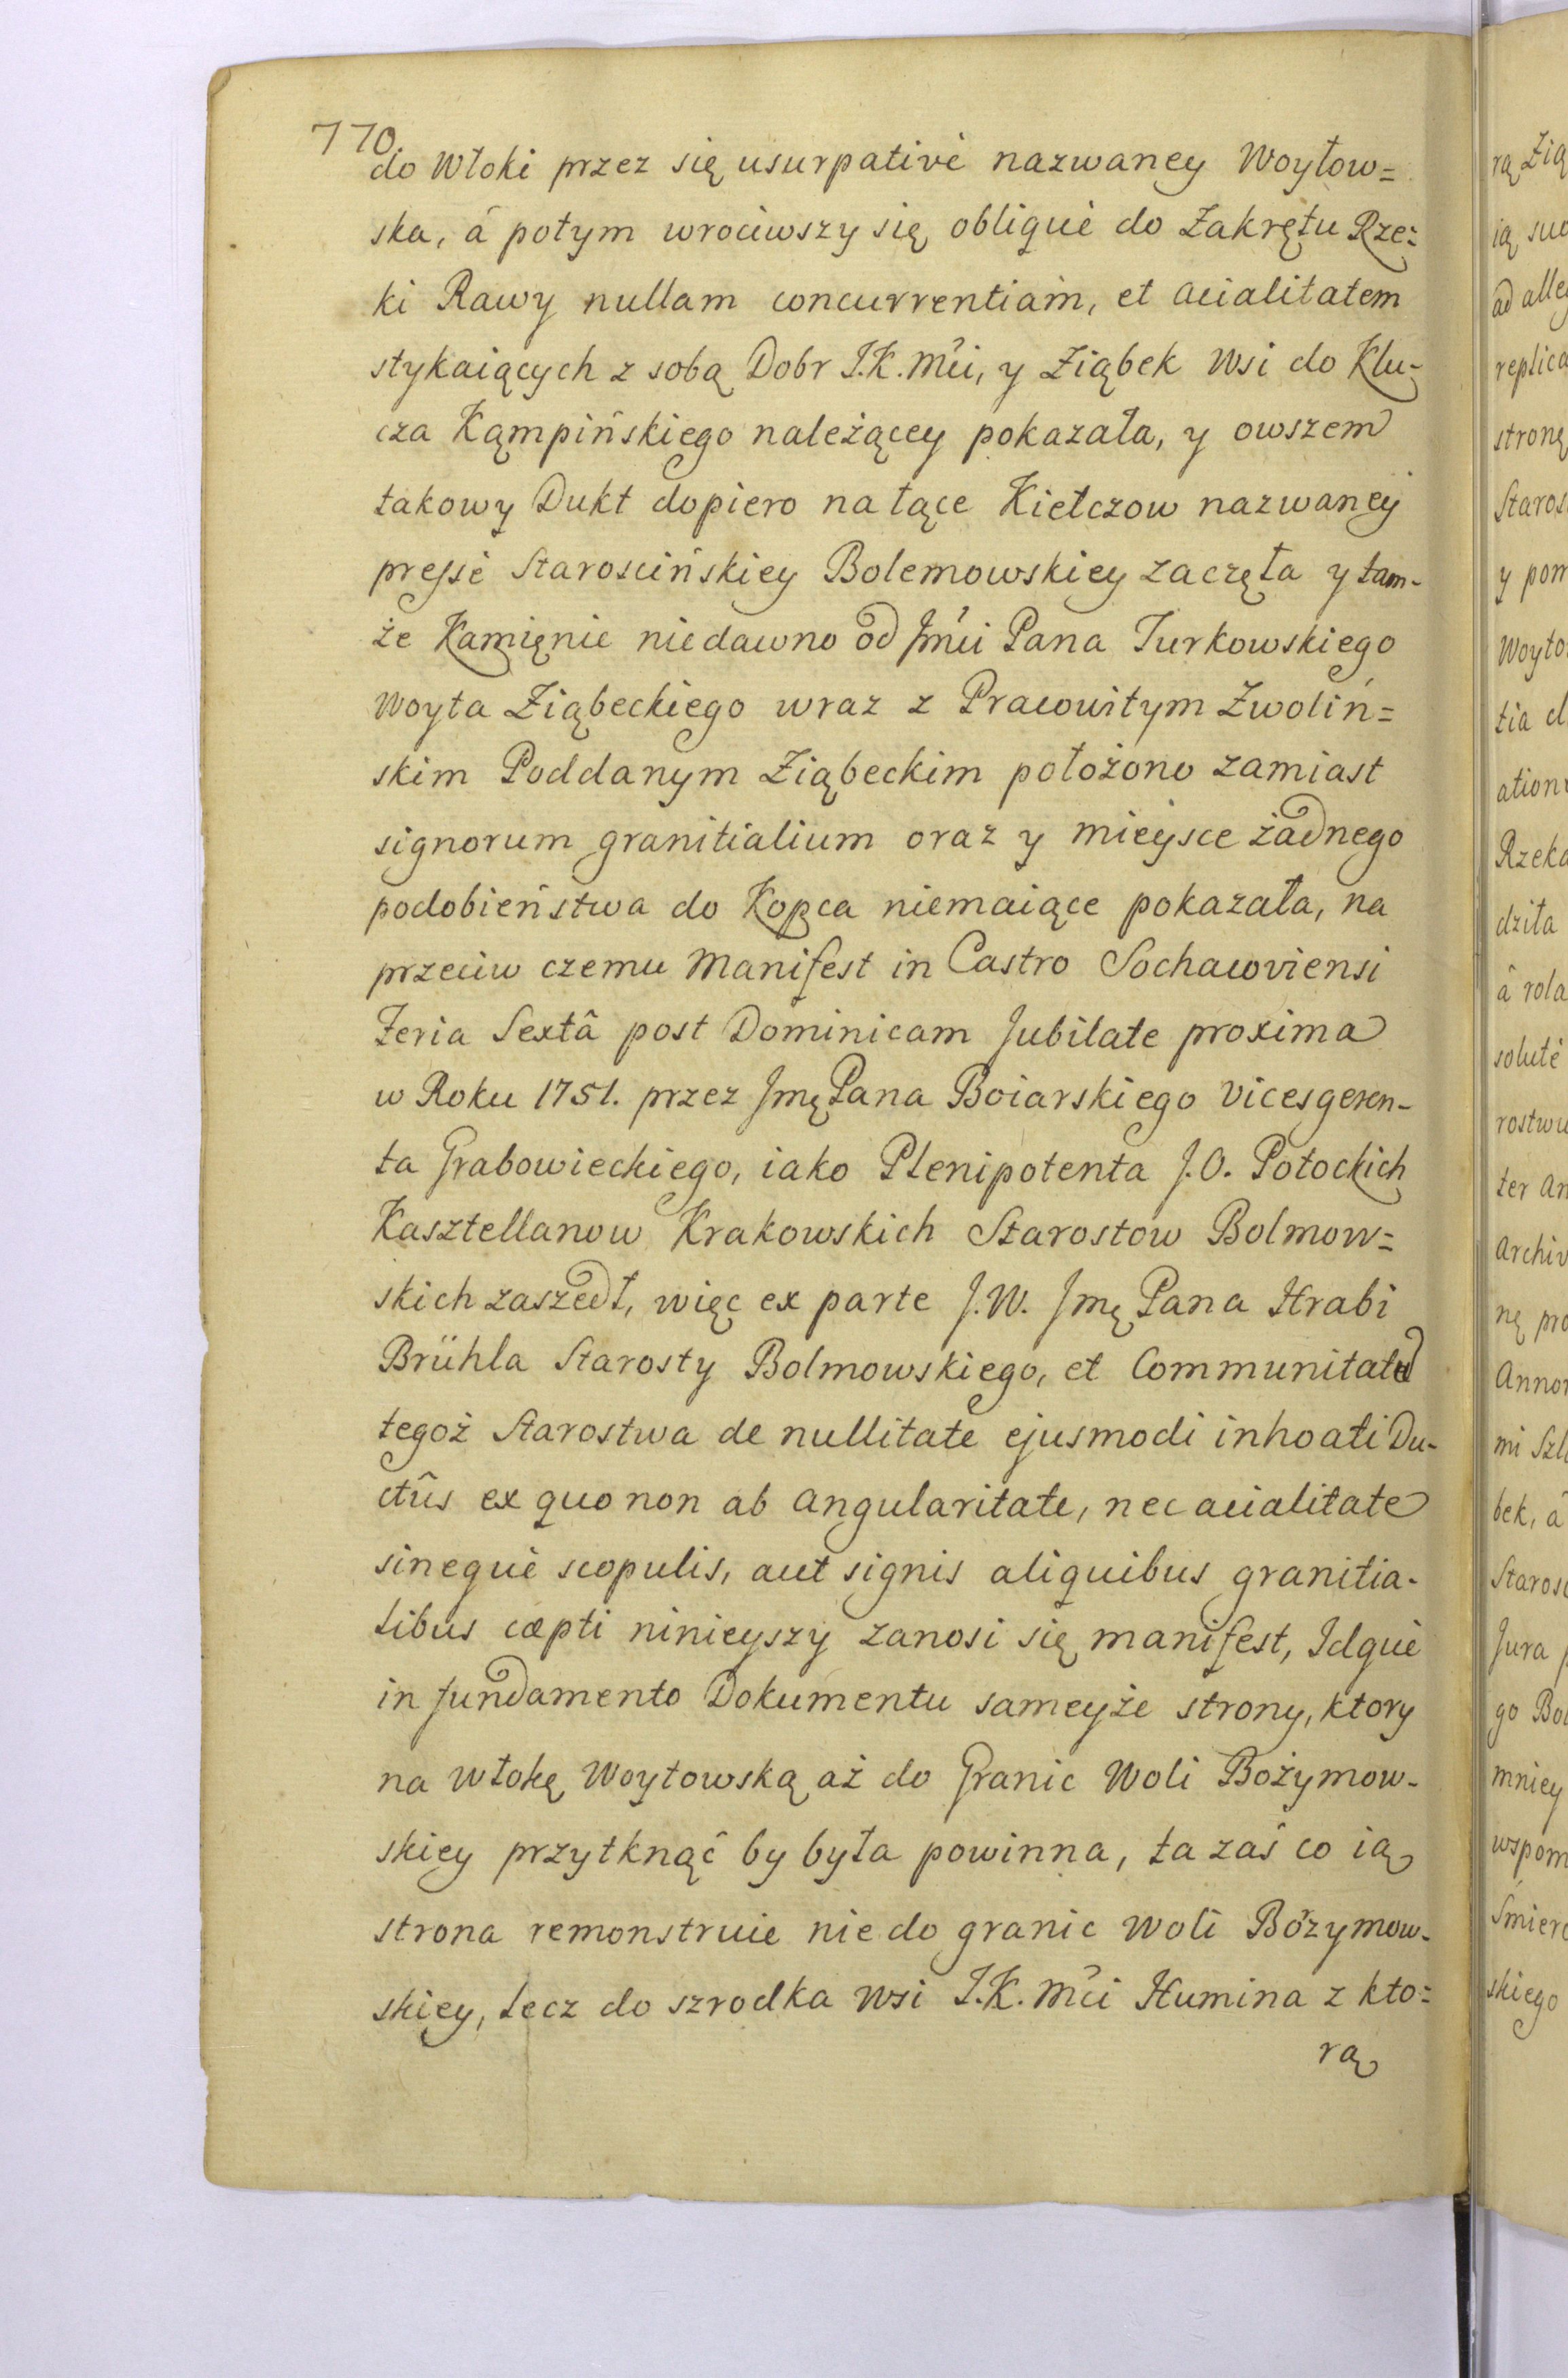 770.
do Włoki przez się usurpativè nazwaney Woytow=
ska, á potym wrociwszy się obliquè do Zakrętu Rze=
ki Rawy nullam concurrentiam, et acialitatem
stykaiących z sobą Dobr J.K.Mći, y Ziąbek Wsi do Klu-
cza Kąmpińskiego należącey pokazała, y owszem
takowy Dukt dopiero na łące Kiełczow nazwaney
pressè Starościńskiey Bolemowskiey zaczęła y tam-
że Kamięnie niedawno od Jmći Pana Turkowskiego
Woyta Ziąbeckiego wraz z Pracowitym Zwoliń=
skim Poddanym Ziąbeckim położono zamiast
signorum granitialium oraz y mieysce żadnego
podobieństwa do Kopca niemaiące pokazała, na
przeciw czemu Manifest in Castro Sochacoviensi
Feria Sextâ post Dominicam Jubilate proxima
w Roku 1751. przez Jmę Pana Boiarskiego Vicesgeren-
ta Grabowieckiego, iako Plenipotenta J.O. Potockich
Kasztellanow Krakowskich Starostow Bolmow=
skich zaszedł, więc ex parte J.W. Jmę Pana Hrabi
Brühla Starosty Bolmowskiego, et Communitatis
tegoż Starostwa de nullitate ejusmodi inhoati Du-
ctûs ex quo non ab angularitate, nec acialitate
sinequè scopulis, aut signis aliquibus granitia-
libus cæpti ninieyszy zanosi się manifest, Idquè
in fundamento Dokumentu sameyże strony, ktory
na włokę Woytowską aż do Granic Woli Bożymow-
skiey przytknąć by była powinna, ta zaś co ią
strona remonstruie nie do granic Woli Bożymow-
skiey, lecz do szrodka Wsi J.K.Mći Humina z kto=
rą